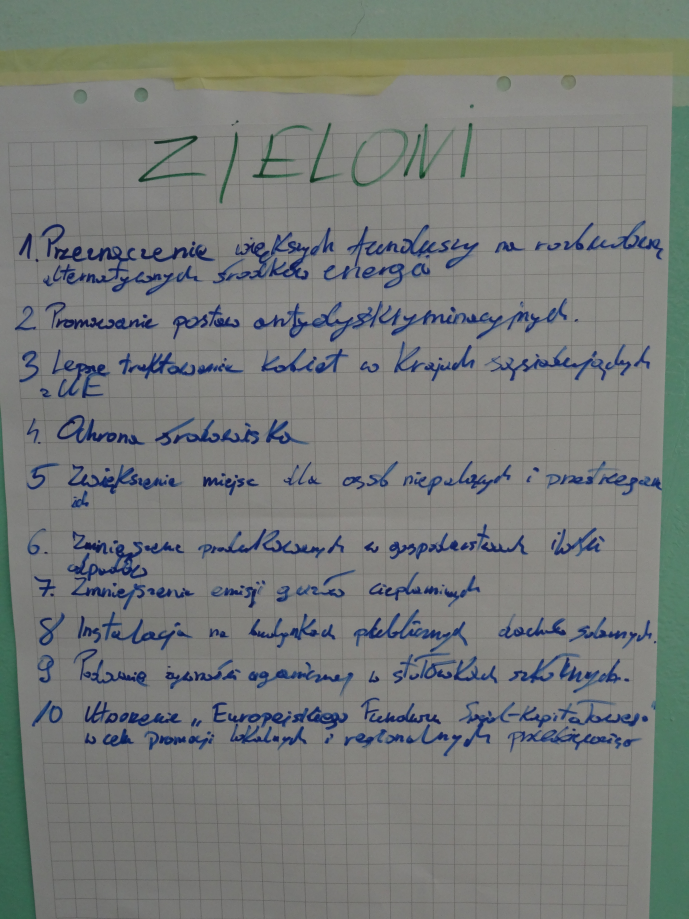 ZIELONI
1. Przeznaczenie większych funduszy na rozbudowę
alternatywnych środków energii
2 Promowanie postaw antydyskryminacyjnych.
3 Lepsze traktowanie kobiet w Krajach sąsiadujących
z UE
4. Ochrona środowiska
5 Zwiększenie miejsc dla osób niepalących i przestrzeganie
ich
6. Zmniejszenie produkowanych w gospodarstwach ilości
odpadów
7. Zmniejszenie emisji gazów cieplarnianych
8 Instalacja na budynkach publicznych dachów solarnych.
9 Podawanie żywności organicznej w stołówkach szkolnych.
10 Utworzenie „Europejskiego Funduszu Kapitałowego"
w celu promocji lokalnych i regionalnych